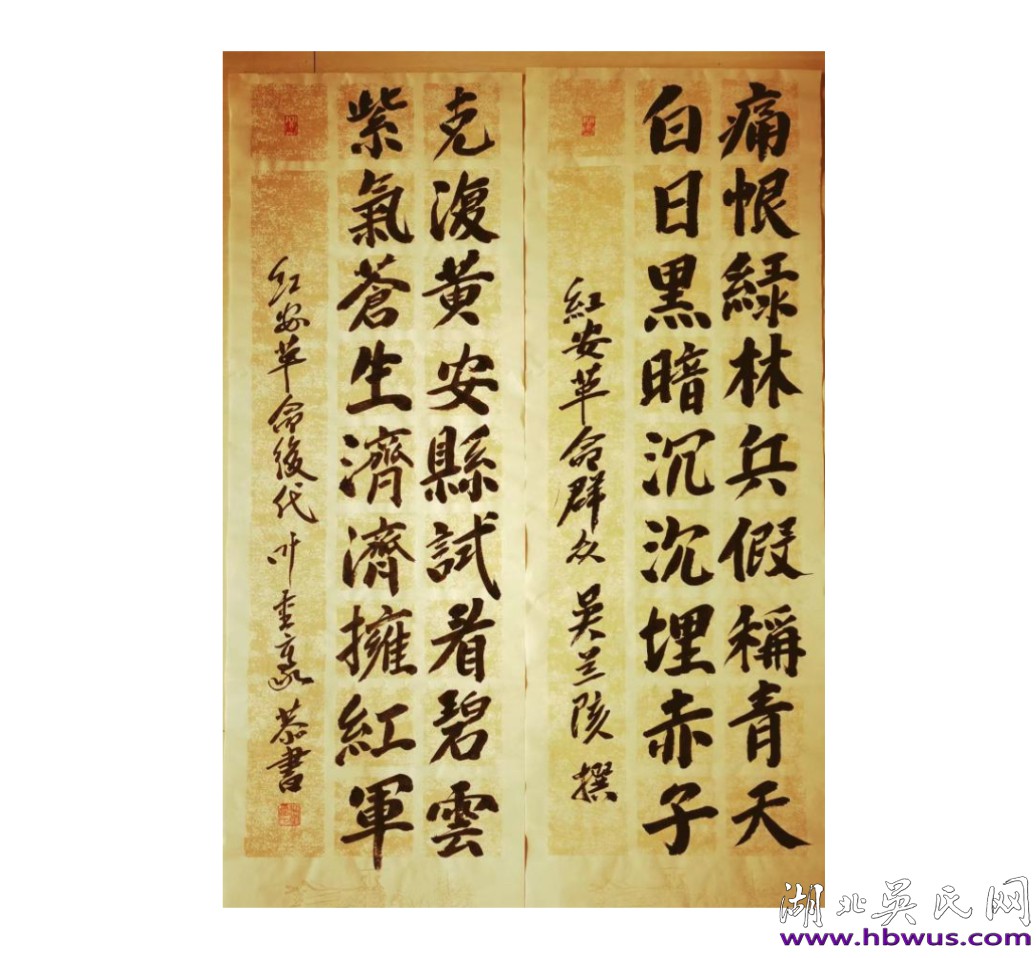 痛恨綠林兵假稱青天
白日黑暗沉沉埋赤子
紅安革命群众 吴兰陔 撰
克復黄安縣試看碧雲
紫氣蒼生濟濟擁紅軍
红安革命後代 叶金豪 恭書
湖北吴氏网
www.hbwus.com